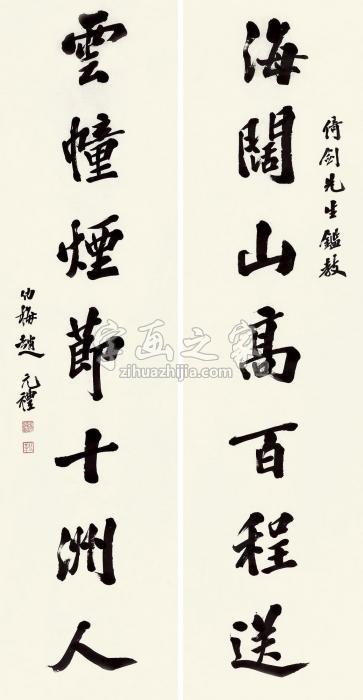 海闊山高百程送
倚劍先生鑑教
雲幢煙節十洲人
幼梅趙元禮
字画之家
zihuazhijia.com